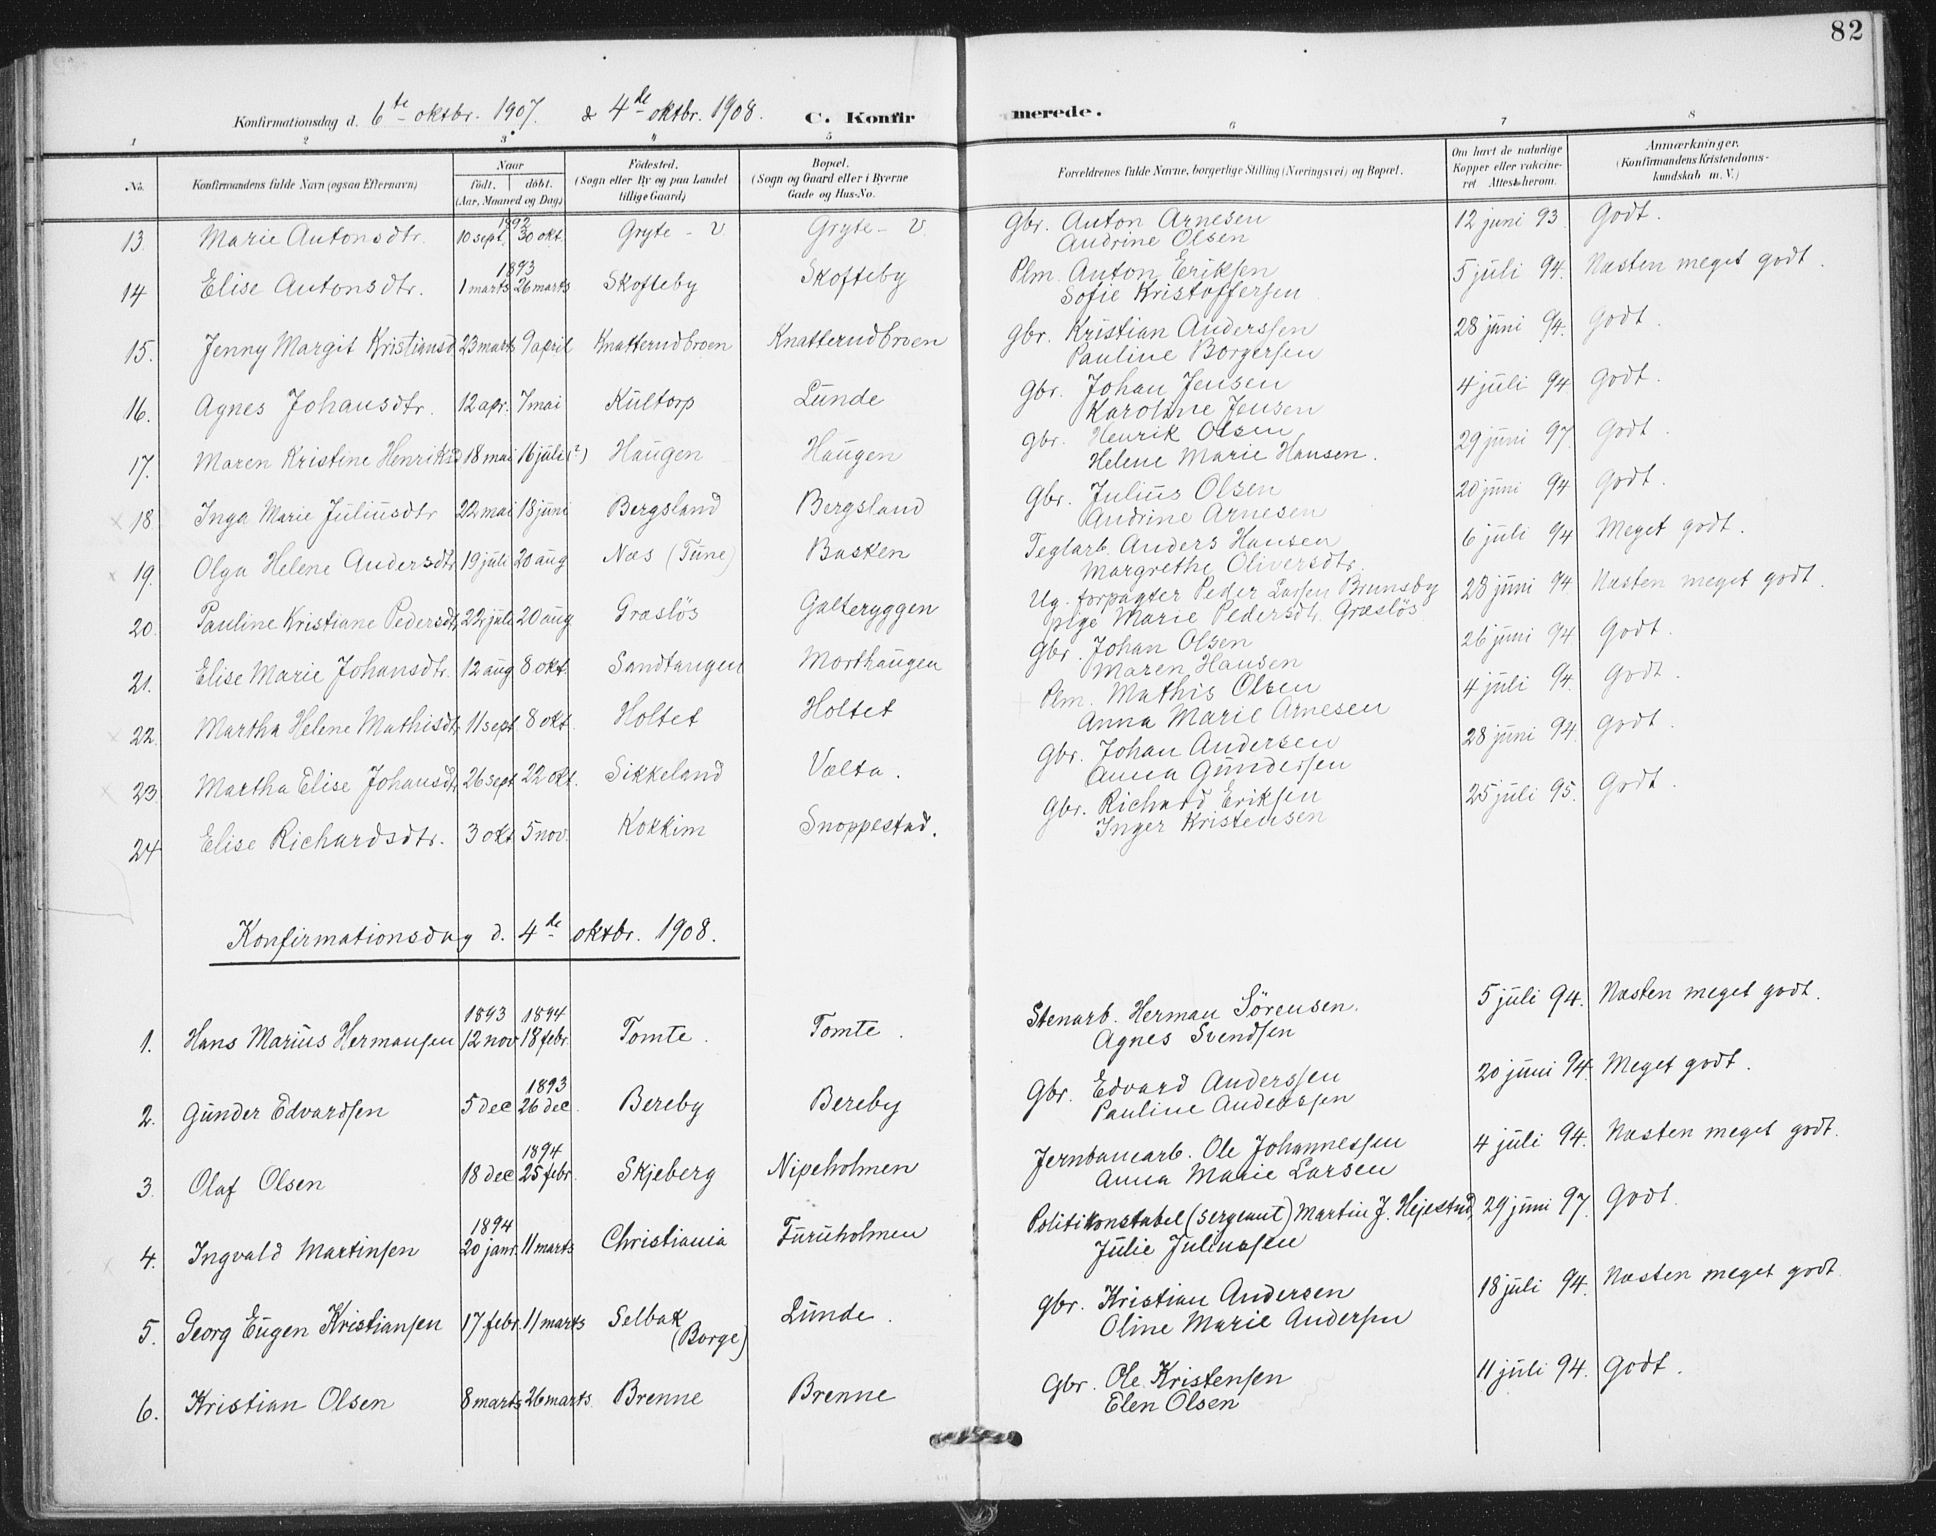 82
Konfirmationsdag d. 6te oktbr. 1907. & 4de oktbr. 1908. C. Konfirmerede.
1 2 3 4 5 6 7 8
No. Konfirmandens fulde Navn (ogsaa Efternavn) Naar født. døbt. (Aar, Maaned og Dag) Fødested. (Sogn eller By og paa Landet tillige Gaard) Bopæl. (Sogn og Gaard eller i Byerne Gade og Hus-No. Forældrenes fulde Navne, borgerlige Stilling (Næringsvei) og Bopæl. Om havt de naturlige Kopper eller vakcineret Attest herom. Anmærkninger. (Konfirmandens Kristendomskundskab m. V.)
1892
13. Marie Antonsdtr. 10 sept. 30 okt. Gryte - v Gryte - v. Gbr. Anton Arnesen 12 juni 93 Godt.
Andrine Olsen
1893
14 Elise Antonsdtr. 1 marts 26 marts Skofteby Skofteby Plm. Anton Eriksen 5 juli 94. Næsten meget godt.
Sofie Kristoffersen
15. Jenny Margit Kristiansd. 23 marts 9 april Knatterudbroen Knatterudbroen Gbr. Kristian Anderssen 28 juni 94. Godt.
Pauline Borgersen
16. Agnes Johansdtr. 12 apr. 7 mai Kultorp Lunde Gbr. Johan Jensen 4 juli 94 Godt.
Karoline Jensen
17. Maren Kristine Henriksd 18 mai 16 juli (?) Haugen Haugen Gbr. Henrik Olsen 29 juni 97. Godt.
Helene Marie Hansen.
x 18. Inga Marie Juliusdtr 22 mai 18 juni Bergsland Bergsland Gbr. Julius Olsen 20 juni 94 Godt.
Andrine Arnesen
x 19. Olga Helene Andersdtr 19 juli 20 aug Næs (Tune) Basken Teglarb. Anders Hansen 6 juli 94 Meget godt.
Margrethe Oliversdtr.
20. Pauline Kristiane Pedersdtr 22 juli 20 aug Græsløs Galteryggen Ug. forpagter Peder Larsen Brunsby 28 juni 94. Næsten meget godt.
pige Marie Pedersdtr. Græsløs
21. Elise Marie Johansdtr. 12 aug 8 okt. Sandtangen Morthaugen Gbr. Johan Olsen 26 juni 94 Godt.
Maren Hansen
x 22. Martha Helene Mathisdtr 11 sept 8 okt. Holtet Holtet Plm. Mathis Olsen 4 juli 94. Godt.
Anna Marie Arnesen
x 23. Martha Elise Johansdtr 26 sept 22 okt. Sikkeland Valta. Gbr. Johan Andersen 28 juni 94 Godt.
Anna Gundersen
24 Elise Richardsdtr. 3 okt 5 nov. Kokkim Snoppestad. Gbr. Richard Eriksen 25 juli 95. Godt.
Inger Kristensen
Konfirmationsdag d. 4de oktbr. 1908.
1893 1894
1. Hans Marius Hermansen 12 nov 18 febr. Tomte. Tomte. Stenarb. Herman Sørensen. 5 juli 94. Næsten meget godt.
Agnes Svendsen
1893
2. Gunder Edvardsen 5 dec 26 dec. Bereby Bereby Gbr. Edvard Anderssen 20 juni 94. Meget godt.
Pauline Anderssen
1894
3. Olaf Olsen 18 dec 25 febr. Skjeberg Nipeholmen Jernbanearb. Ole Johannessen 4 juli 94. Næsten meget godt.
Anna Marie Larsen
1894
4. Ingvald Martinsen 20 janr. 11 marts Christiania Furuholmen Politikonstabel (sergeant) Martin J. Hejestad, 29 juni 97. Godt.
Julie Juliussen
5. Georg Eugen Kristiansen 17 febr. 11 marts Selbak (Borge) Lunde. Gbr. Kristian Andersen 18 juli 94. Næsten meget godt.
Oline Marie Andersen
6. Kristian Olsen 8 marts 26 marts. Brenne Brenne Gbr. Ole Kristensen 11 juli 94. Godt.
Elen Olsen